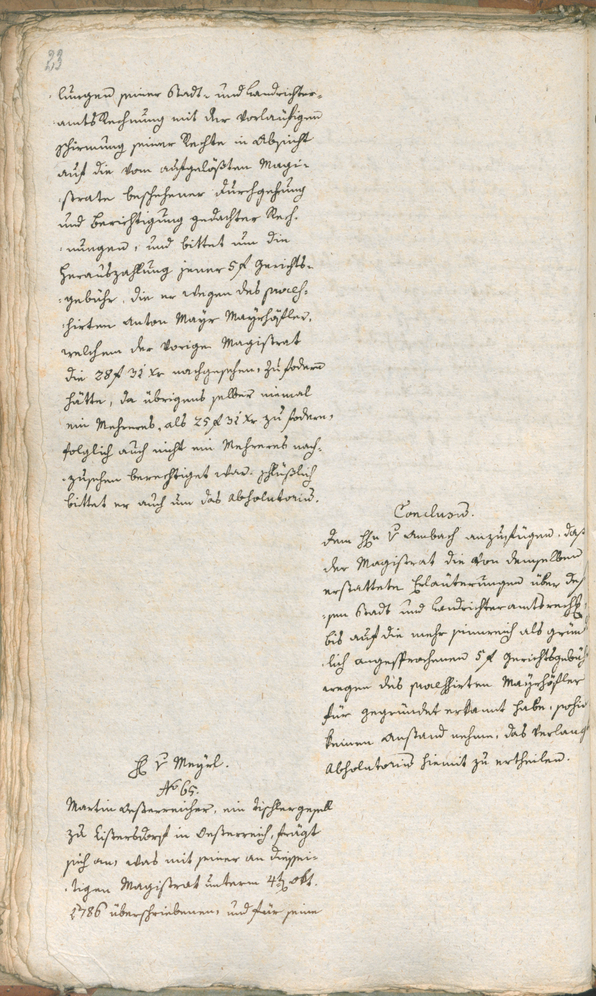 23
lungen seiner Stadt- und Landrichter-
amts Rechnung mit der vorläufigen
schirmung seiner Rechte in Absicht
auf die vom aufgelößten Magi-
strate beschehener Durchgehung
und Berichtigung gedachter Rech-
nungen, und bittet um die
Herauszahlung jener 5 f Gerichts-
gebühr, die er wegen des
hirten Anton Mayr Mayrhöfler,
welchem der vorige Magistrat
die 28 f 31 xr nachgesehen, zu fodern
hätte, da übrigens selber niemal
ein Mehreres, als 25 f 31 xr zu fodern,
folglich auch nicht ein Mehreres nach-
zusehen berechtiget war. schlüßlich
bittet er auch um das Absolutorium.
Conclusum.
Dem Hrn v Ambach anzufügen, daß
der Magistrat die von demselben
erstattete Erläuterungen über des-
sen Stadt und Landrichteramtsrechg
bis auf die mehr sinnreich als gründ-
lich angesprochenen 5 f Gerichtsgebüh
wegen des Mayrhöfler
für gegründet erkannt habe, sohin
keinen Anstand nehme, das verlangte
Absolutorium hiemit zu ertheilen.
H v Meyrl.
No 65.
Martin Oesterreicher, ein Tischlergesell
zu Listersdorf in Oesterreich, frägt
sich an, was mit seiner an diessei-
tigen Magistrat unterm 4t Okt.
1786 überschriebenen, und für seine